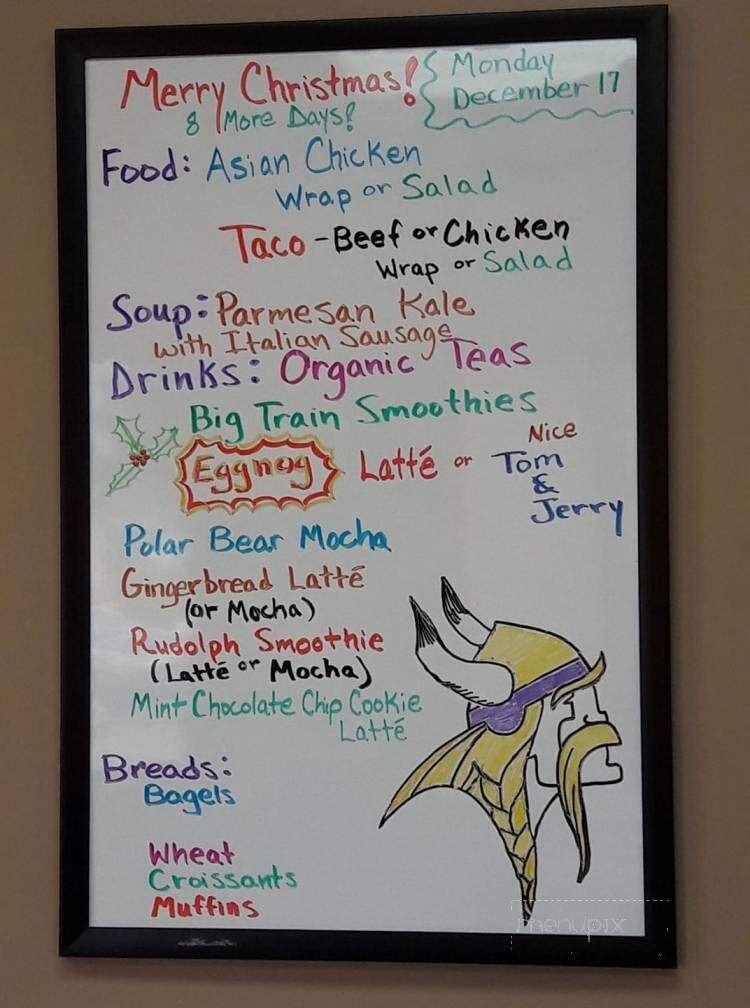 Merry Christmas!
8 More Days!
Monday
December 17
Food: Asian Chicken
Wrap or Salad
Taco - Beef or Chicken
Wrap or Salad
Soup: Parmesan Kale
with Italian Sausage
Drinks: Organic Teas
Big Train Smoothies
Eggnog Latté or Nice
Tom
&
Jerry
Polar Bear Mocha
Gingerbread Latté
(or Mocha)
Rudolph Smoothie
(Latté or Mocha)
Mint Chocolate Chip Cookie
Latté
Breads:
Bagels
Wheat
Croissants
Muffins
menupix